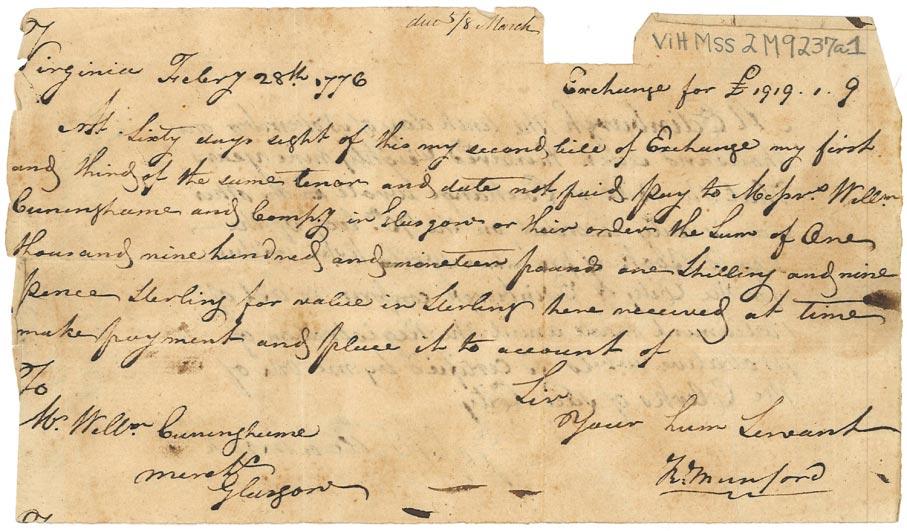 due 5/8 March
ViH MSS 2 M9237a1
Virginia Febry 28th 1776
Exchange for £1919. 1. 9
Att Sixty days sight of this my second bill of Exchange my first
and third of the same tenor and date not paid pay to Messrs. Willm
Cuninghame and Compy in Glasgow or their order the Sum of One
thousand nine hundred and nineteen pounds one Shilling and nine
pence Sterling for value in Sterling here received at time
make payment and place it to account of
Sir
To
Your hum Servant
Mr. Willm Cuninghame
mercht
Glasgow
R. Munford